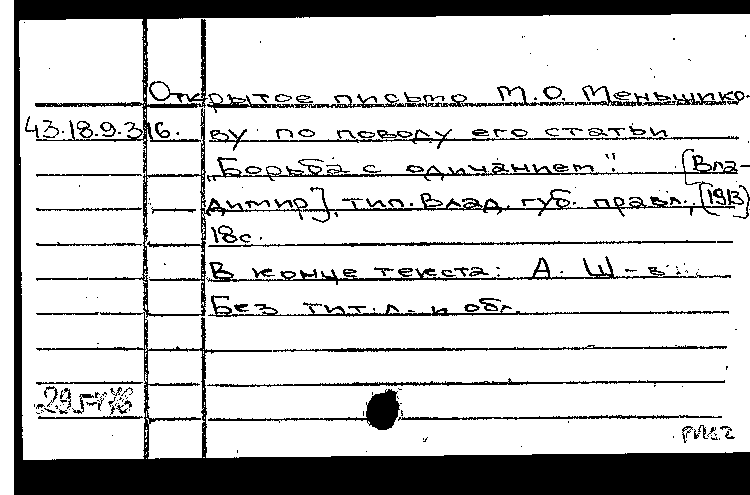 Открытое письмо М.О. Меньшико-
43.18.9.316. ву по поводу его статьи
„Борьба с одичанием". [Вла-
димир], тип. Влад. губ. правл., [1913]
18с.
В конце текста: А. Ш-в
Без тит. л. и обл.